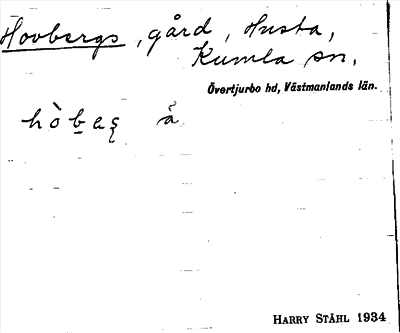 Hovbergs, gård, Husta,
Kumla sn.
Övertjurbo hd, Västmanlands län.
å
HARRY STÅHL 1934